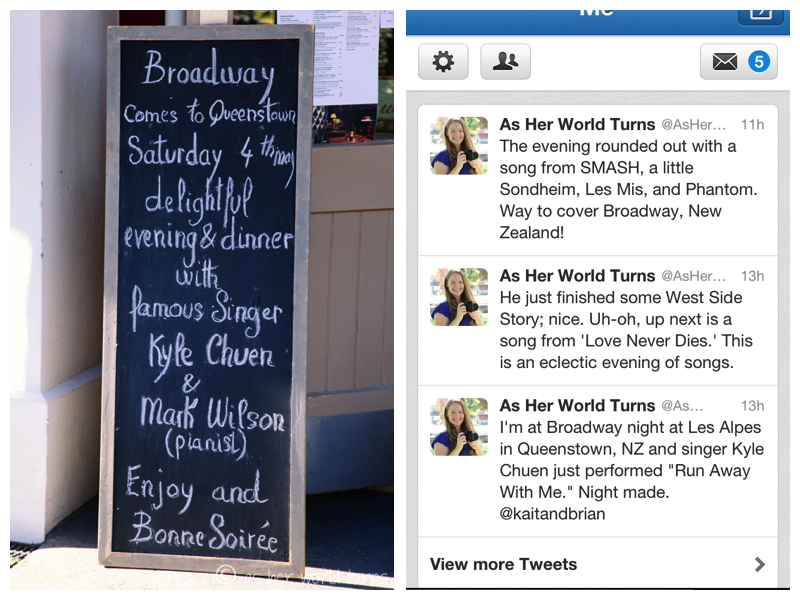 Broadway
Comes to Queenstown
Saturday 4th may
delightful
evening & dinner
with
famous Singer
Kyle Chuen
&
Mark Wilson
(pianist)
Enjoy and
Bonne Soirée
© as her world turns
Me
5
As Her World Turns @AsHer... 11h
The evening rounded out with a
song from SMASH, a little
Sondheim, Les Mis, and Phantom.
Way to cover Broadway, New
Zealand!
As Her World Turns @AsHer... 13h
He just finished some West Side
Story; nice. Uh-oh, up next is a
song from 'Love Never Dies.' This
is an eclectic evening of songs.
As Her World Turns @As... 13h
I'm at Broadway night at Les Alpes
in Queenstown, NZ and singer Kyle
Chuen just performed "Run Away
With Me." Night made.
@kaitandbrian
View more Tweets